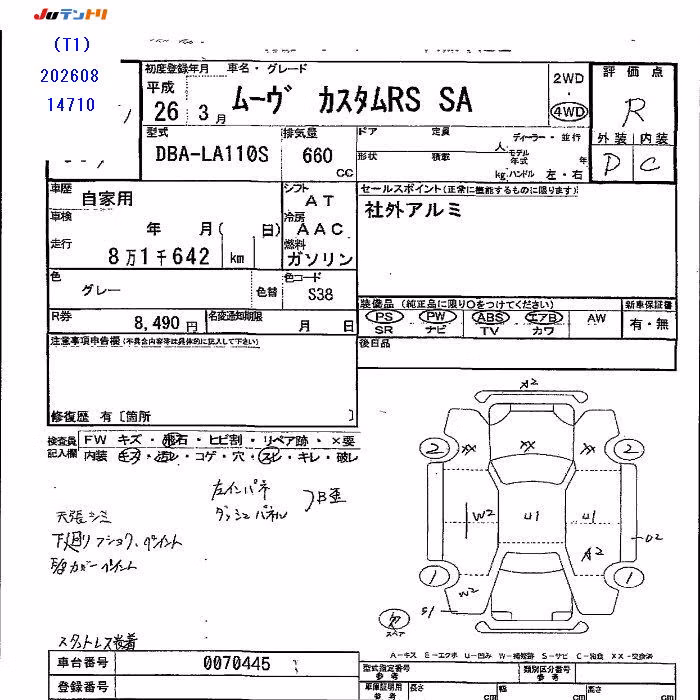 JUテントリ
(T1)
202608
14710
初度登録年月 車名・グレード
平成
26 3月
ムーヴ カスタムRS SA
2WD
・
4WD
評価点
R
外装 内装
D C
型式
DBA-LA110S
排気量
660
CC
ドア 定員 人
ディーラー・並行
モデル年式 年
形状 積載 kg
ハンドル 左・右
車歴
自家用
シフト
AT
車検
年 月( 日)
冷房
AAC
走行
8万1千642 km
燃料
ガソリン
セールスポイント(正常に機能するものに限ります)
社外アルミ
色
グレー
色替
色コード
S38
装備品 (純正品に限り○をつけてください)
PS PW ABS エアB AW
SR ナビ TV カワ
新車保証書
有・無
R券
8,490円
名変通知期限
月 日
後日品
注意事項申告欄(不具合内容等は具体的に記入して下さい)
修復歴 有〔箇所 〕
検査員記入欄
FW キズ・飛石・ヒビ割・リペア跡・×要
内装 キズ・汚レ・コゲ・穴・スレ・キレ・破レ
左インパネ
ダッシュパネル
天張シミ
下廻りフショク、ペイント
スタットレス装着
A2
2 XX XX XX 2
W2 U1 U1
A2
U2
1 1
W2
S1
スペア
A-キズ E-エクボ U-凹み W-補修跡 S-サビ C-腐食 XX-交換済
車台番号
0070445
登録番号
型式指定番号
参考
類別区分番号
参考
車庫証明用
参考
長さ cm
幅 cm
高さ cm